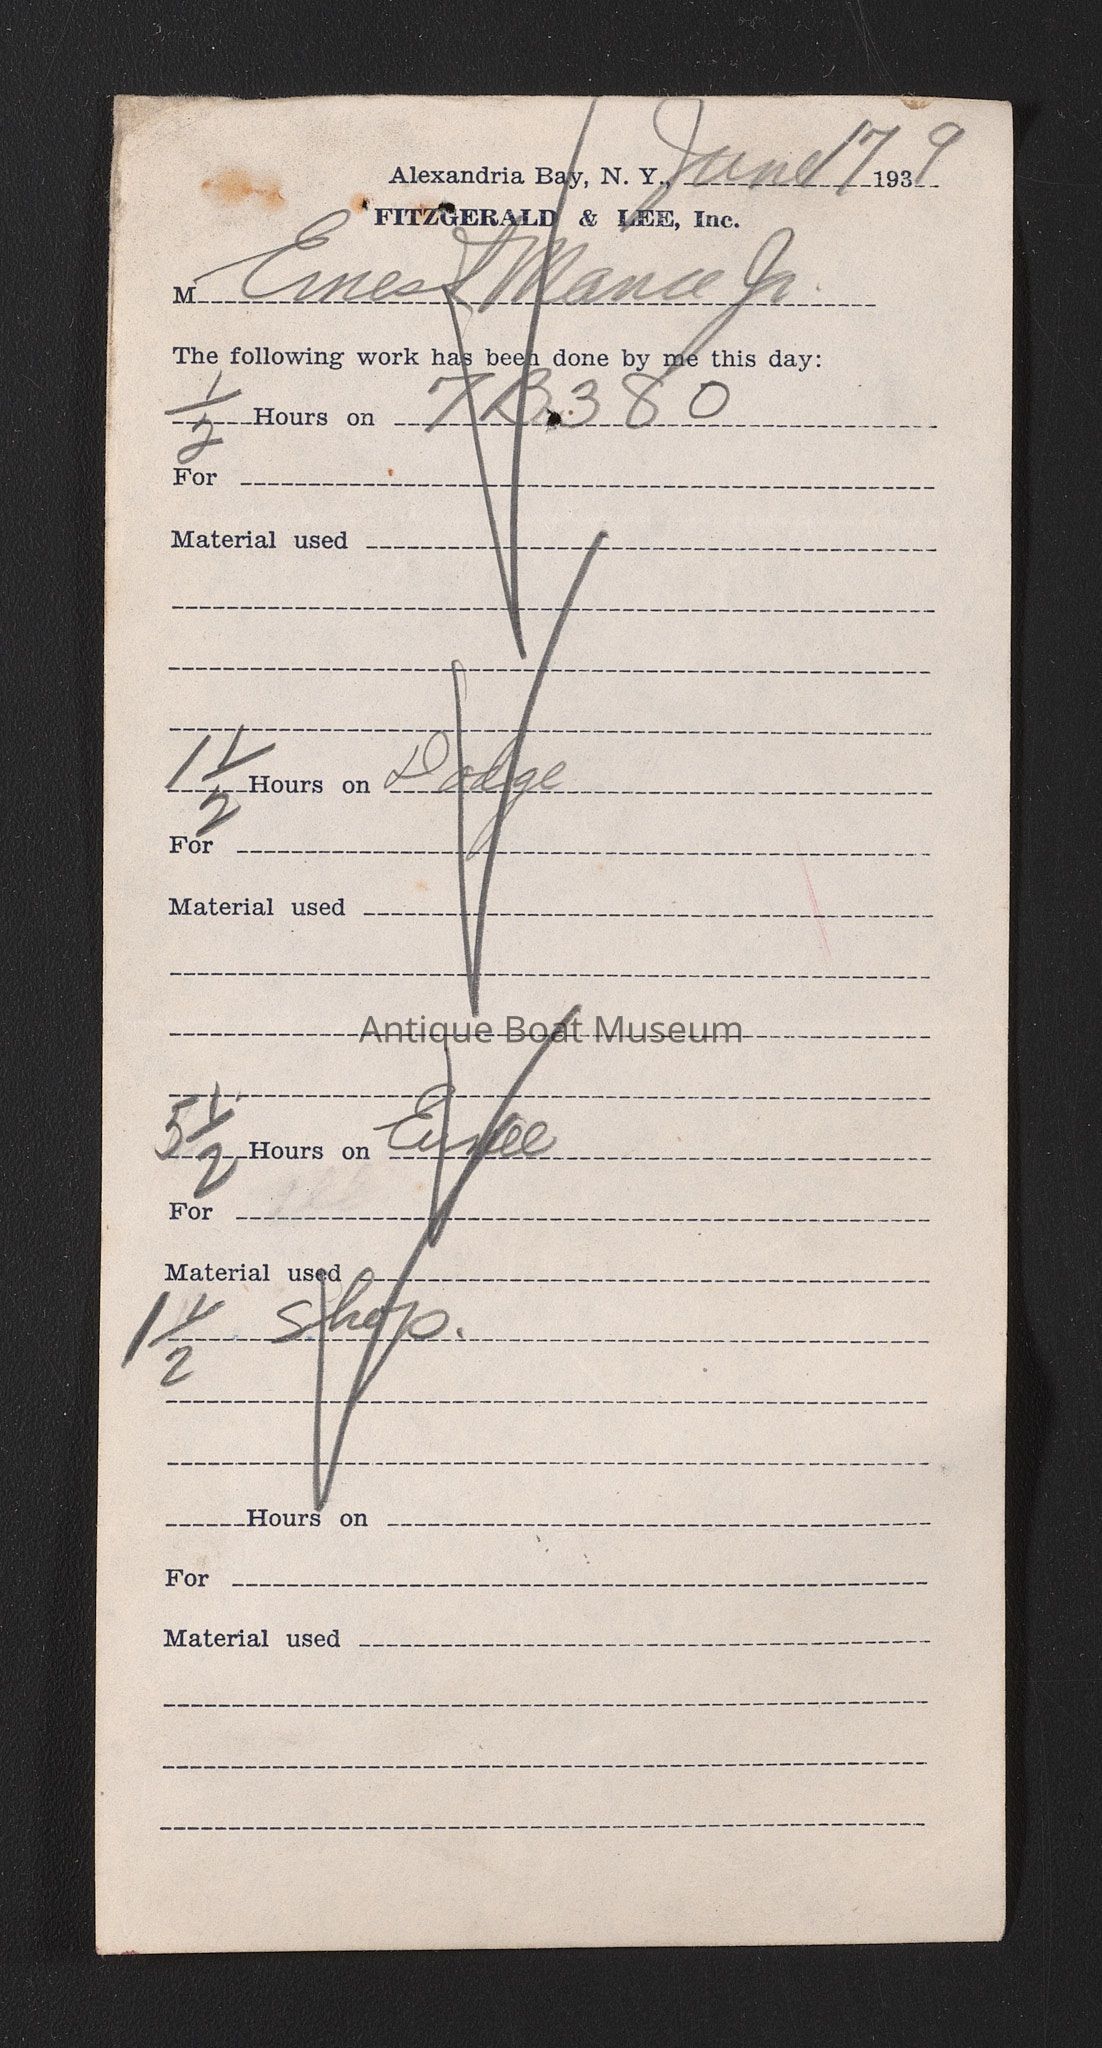 Alexandria Bay, N. Y., June 17 1939
FITZGERALD & LEE, Inc.
M Ernest Mance Jr.
The following work has been done by me this day:
1/2 Hours on 7B380
For
Material used
1 1/2 Hours on Dodge
For
Material used
Antique Boat Museum
5 1/2 Hours on
For
Material used
1 1/2 Shop.
Hours on
For
Material used